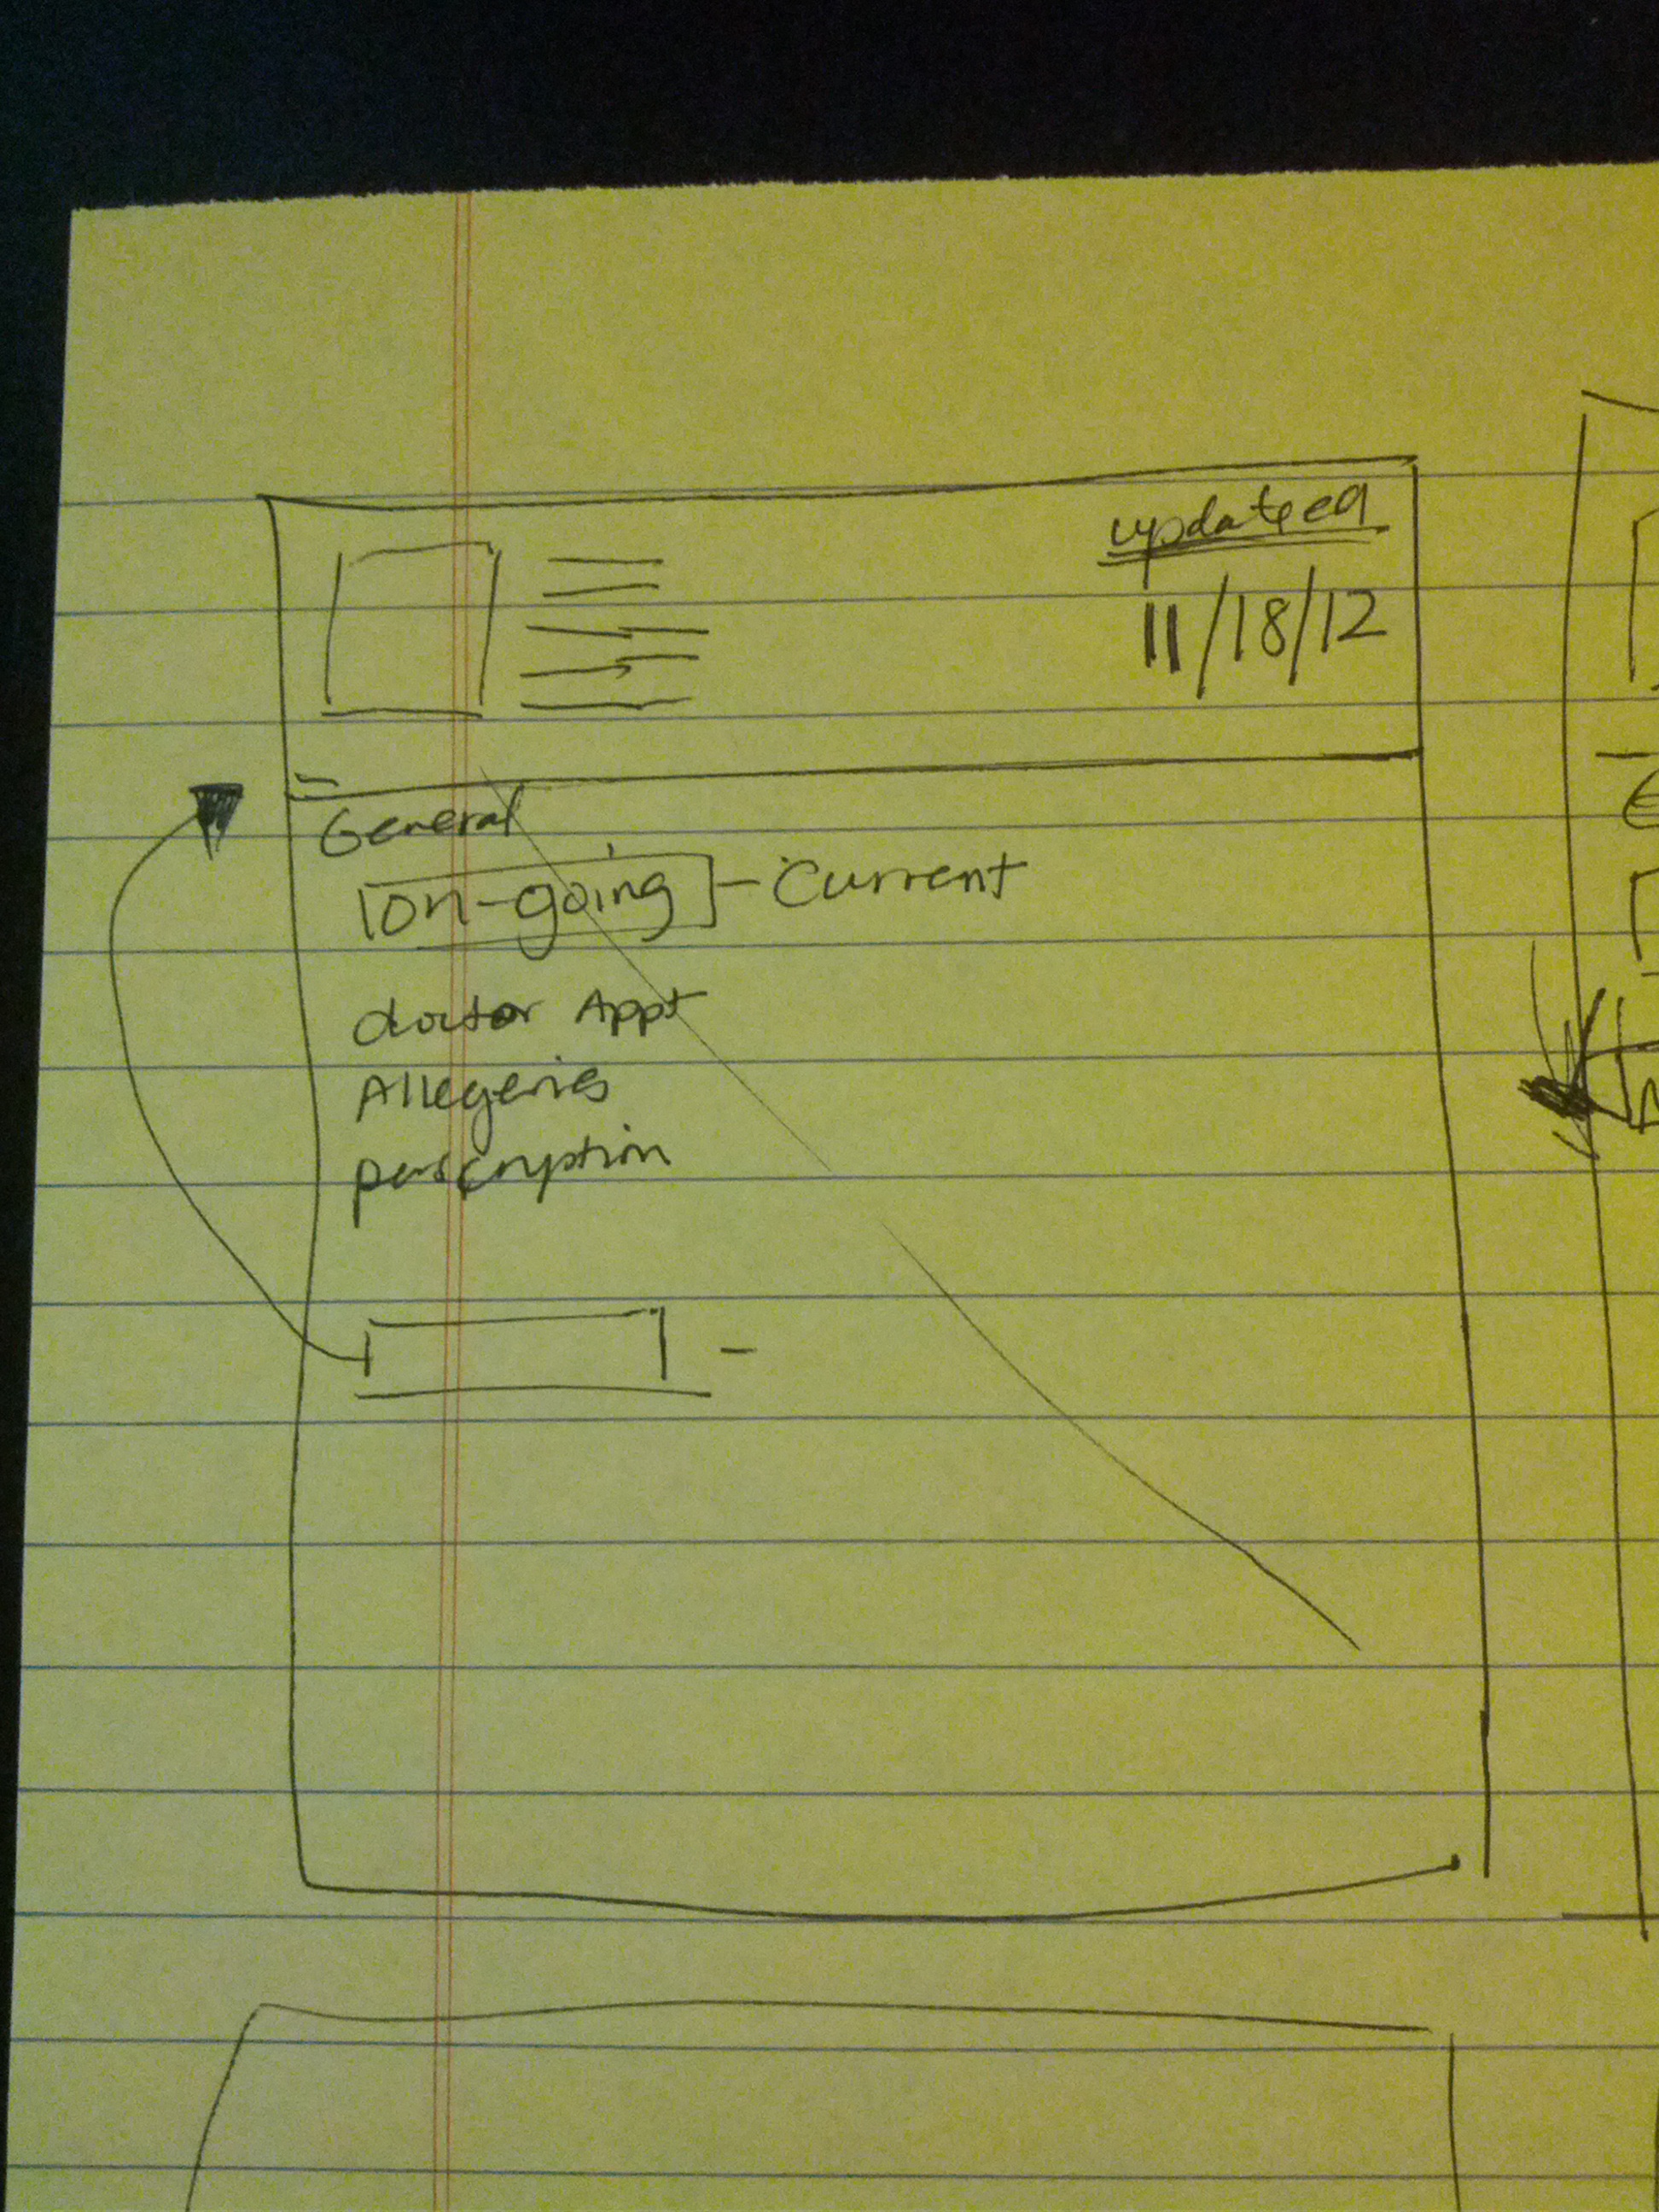 updated
11/18/12
General
on-going - Current
doctor Appt
Allegeries
perscryption